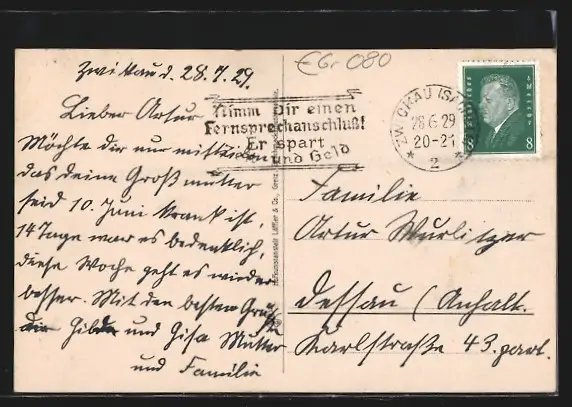 Zwickau d. 28.7.29.
Lieber Artur
Möchte dir nur mitteilen
das deine Großmutter
seid 10. Juni krank ist,
14 Tage war es bedenklich,
diese Woche geht es wieder
besser. Mit den besten Grüssen
Hilde und Gisa Mutter
und Familie
E Gr 080
Nimm Dir einen
Fernsprechanschluß!
Er spart
und Geld
ZWICKAU (SA
28.6.29
20-21
* 2 *
8 8
Familie
Artur Wurlitzer
Dessau (Anhalt.
Karlstraße 43. part.